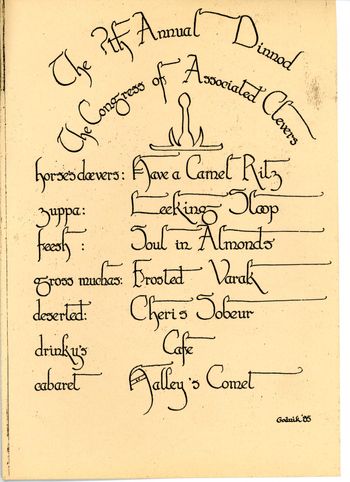 The ?th Annual Dinnod
The Congress of Associated Clevers
horses dœvers: Have a Camel Ritz
zuppa: Leeking Sloop
feesh : Soul in Almonds
gross muchas: Frosted Varak
deserted: Cheris Sobeur
drinky's Cafe
cabaret Halley's Comet
Godnik '85